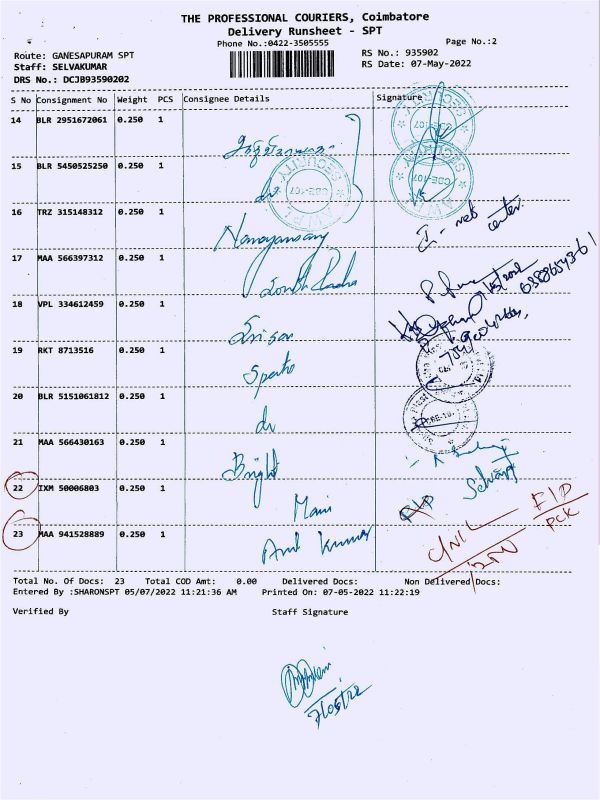 THE PROFESSIONAL COURIERS, Coimbatore
Delivery Runsheet - SPT
Phone No.:0422-3505555
Page No.:2
Route: GANESAPURAM SPT
RS No.: 935902
Staff: SELVAKUMAR
RS Date: 07-May-2022
DRS No.: DCJB93590202
S No Consignment No Weight PCS Consignee Details Signature
14 BLR 2951672061 0.250 1
15 BLR 5450525250 0.250 1
dr
16 TRZ 315148312 0.250 1
Narayansamy
17 MAA 566397312 0.250 1
18 VPL 334612459 0.250 1
19 RKT 8713516 0.250 1
20 BLR 5151061812 0.250 1
dr
21 MAA 566430163 0.250 1
Bright
22 IXM 50006803 0.250 1
Mani
23 MAA 941528889 0.250 1
Arul Kumar
Total No. Of Docs: 23 Total COD Amt: 0.00 Delivered Docs: Non Delivered Docs:
Entered By :SHARONSPT 05/07/2022 11:21:36 AM Printed On: 07-05-2022 11:22:19
Verified By Staff Signature